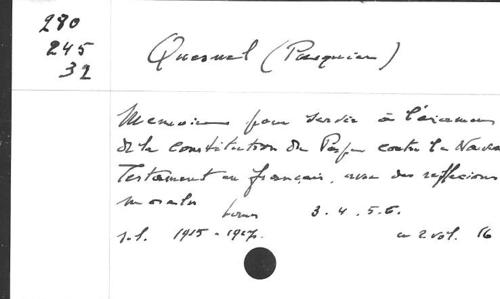 280
245
32
Quesnel (Pasquier)
Memoires pour servir à l'examen
de la constitution du Pape contre le Nouveau
Testament en français, avec des reflexions
morales
tomes 3. 4. 5. 6.
s.l. 1715-1717. en 2 vol. 16